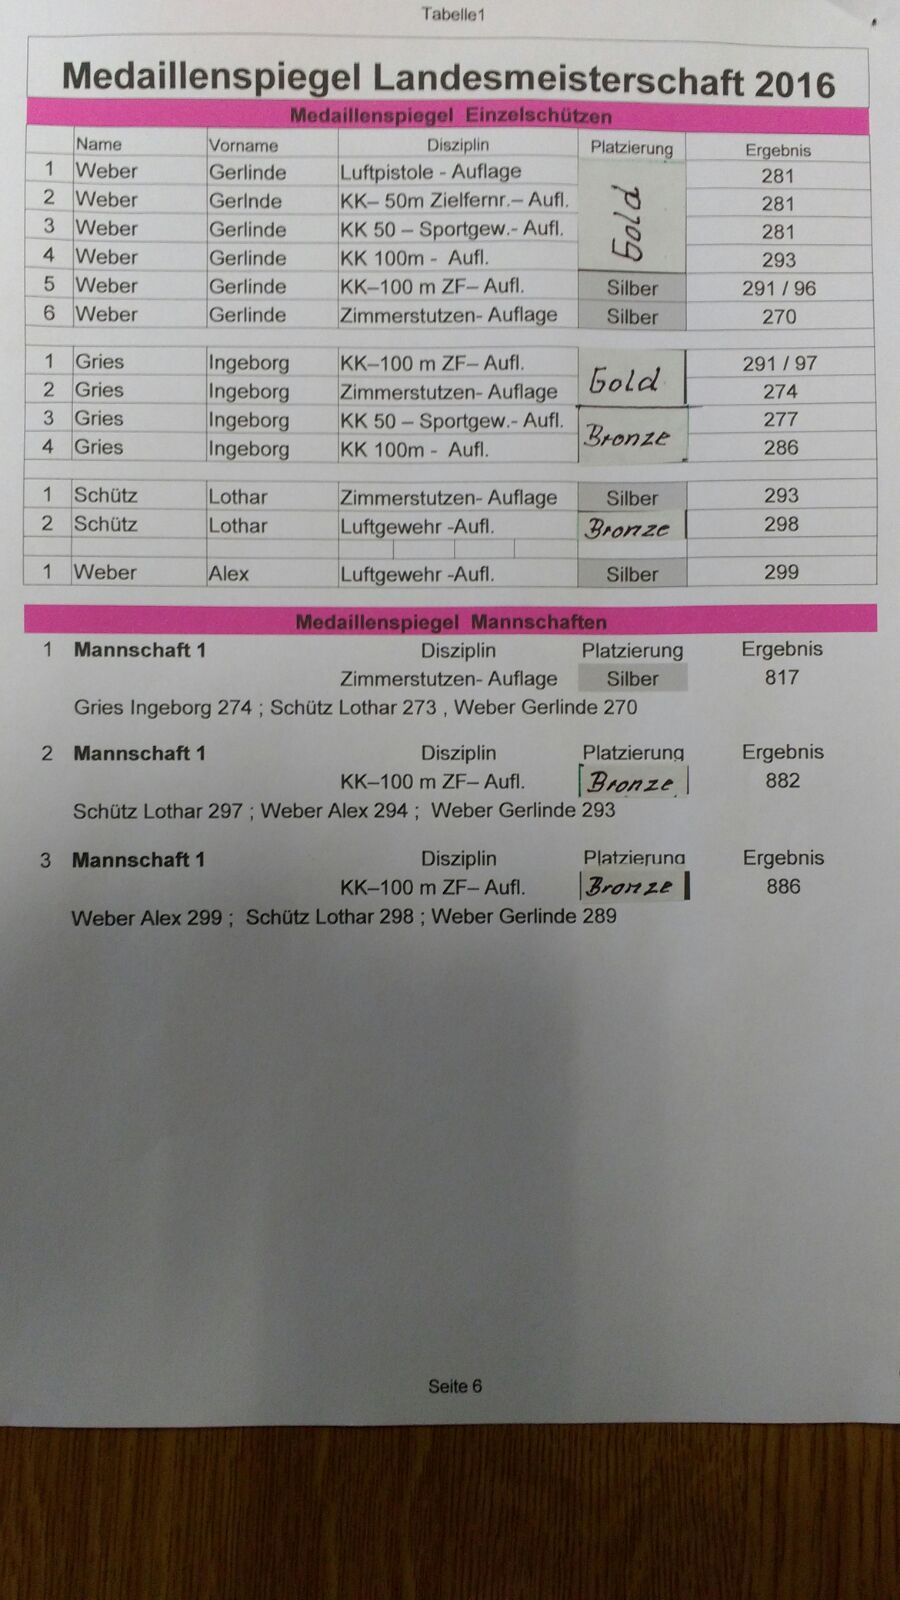 Tabelle1
Medaillenspiegel Landesmeisterschaft 2016
Medaillenspiegel Einzelschützen
Name Vorname Disziplin Platzierung Ergebnis
1 Weber Gerlinde Luftpistole - Auflage Gold 281
2 Weber Gerlnde KK– 50m Zielfernr.– Aufl. 281
3 Weber Gerlinde KK 50 – Sportgew.- Aufl. 281
4 Weber Gerlinde KK 100m - Aufl. 293
5 Weber Gerlinde KK–100 m ZF– Aufl. Silber 291 / 96
6 Weber Gerlinde Zimmerstutzen- Auflage Silber 270
1 Gries Ingeborg KK–100 m ZF– Aufl. Gold 291 / 97
2 Gries Ingeborg Zimmerstutzen- Auflage 274
3 Gries Ingeborg KK 50 – Sportgew.- Aufl. Bronze 277
4 Gries Ingeborg KK 100m - Aufl. 286
1 Schütz Lothar Zimmerstutzen- Auflage Silber 293
2 Schütz Lothar Luftgewehr -Aufl. Bronze 298
1 Weber Alex Luftgewehr -Aufl. Silber 299
Medaillenspiegel Mannschaften
1 Mannschaft 1 Disziplin Platzierung Ergebnis
Zimmerstutzen- Auflage Silber 817
Gries Ingeborg 274 ; Schütz Lothar 273 , Weber Gerlinde 270
2 Mannschaft 1 Disziplin Platzierung Ergebnis
KK–100 m ZF– Aufl. Bronze 882
Schütz Lothar 297 ; Weber Alex 294 ; Weber Gerlinde 293
3 Mannschaft 1 Disziplin Platzierung Ergebnis
KK–100 m ZF– Aufl. Bronze 886
Weber Alex 299 ; Schütz Lothar 298 ; Weber Gerlinde 289
Seite 6